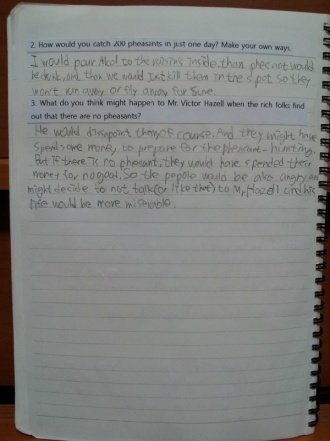 2. How would you catch 200 pheasants in just one day? Make your own ways.
I would pour Akol to the raisins inside, than phecnot would
be dunk, and then we would Just kill them in the spot so they
won't run away or fly away for sure.
3. What do you think might happens to Mr. Victor Hazell when the rich folks find
out that there are no pheasants?
He would disapoint them of cource. And they might have
spends are money to prepare for the pheasant-hunting.
But if there is no pheasant, they would have spended their
money for no goal. So the people would be also angry and
might decide to not talk (or like that) to Mr, Hazell and his
life would be more miserable.